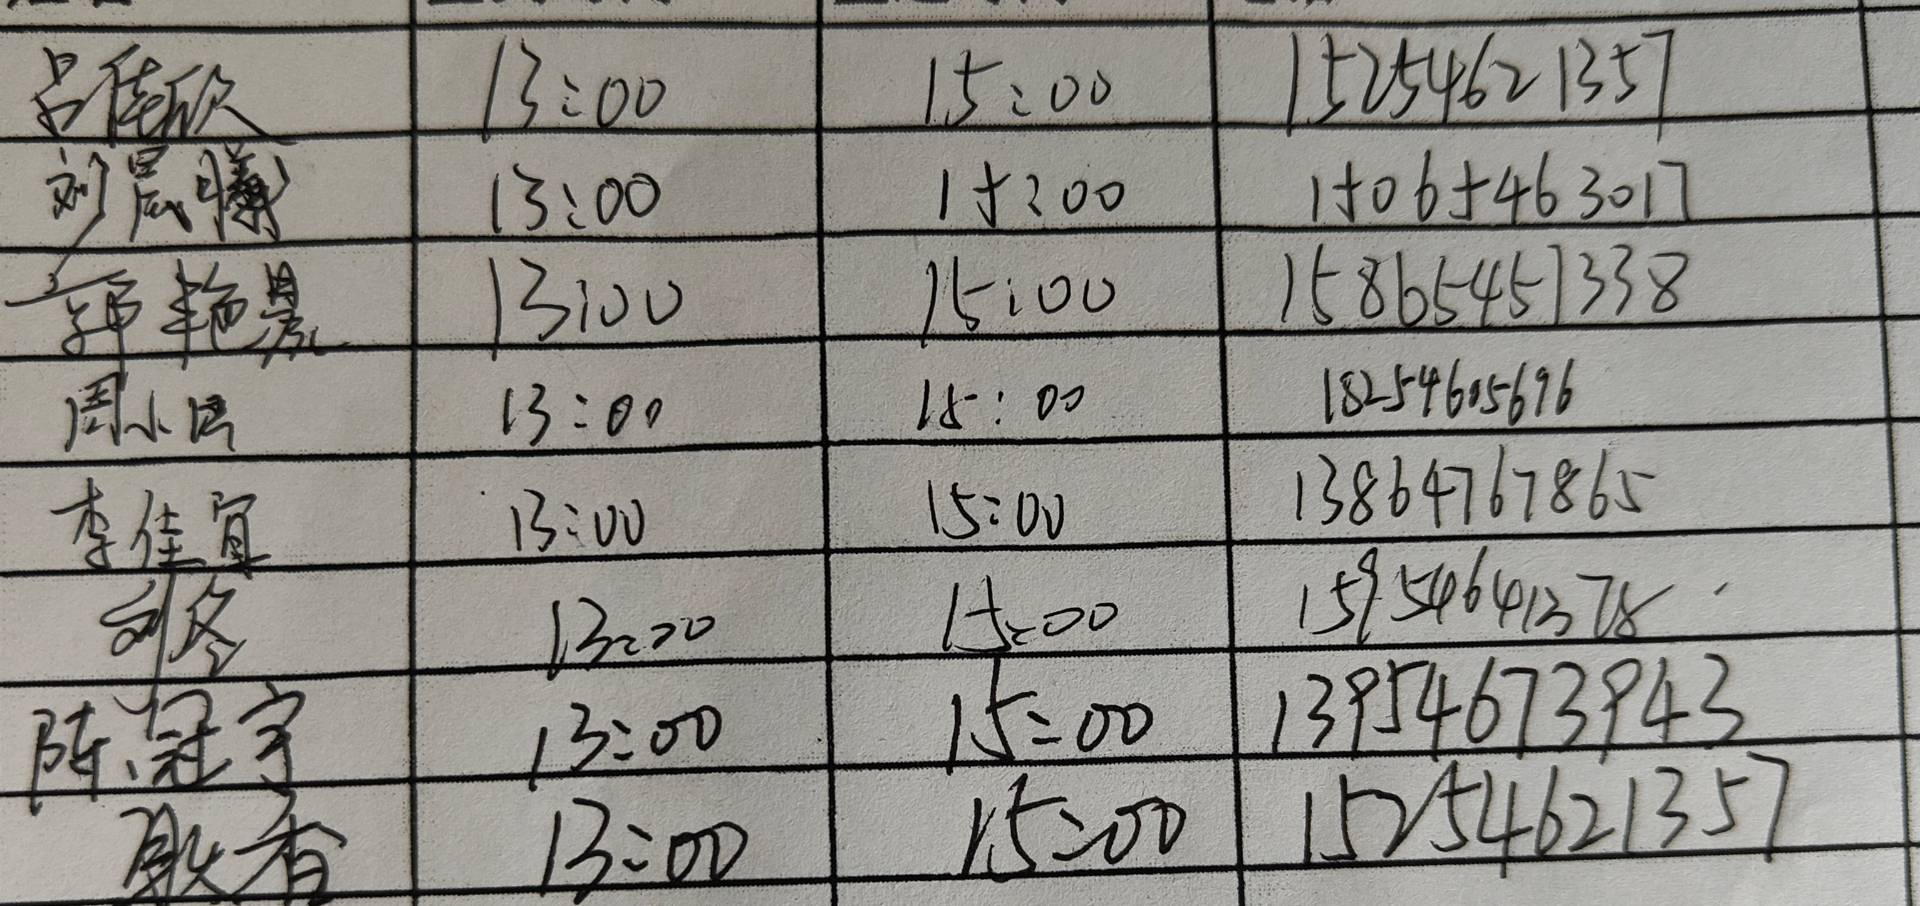 吕佳欣 13:00 15:00 15254621357
刘晨曦 13:00 15:00 15065463017
13:00 15:00 15865451338
周小 13:00 15:00 18254605696
李佳宜 13:00 15:00 13864767865
刘冬 13:00 15:00 15954641378
陈冠宇 13:00 15:00 13954673943
13:00 15:00 15254621357